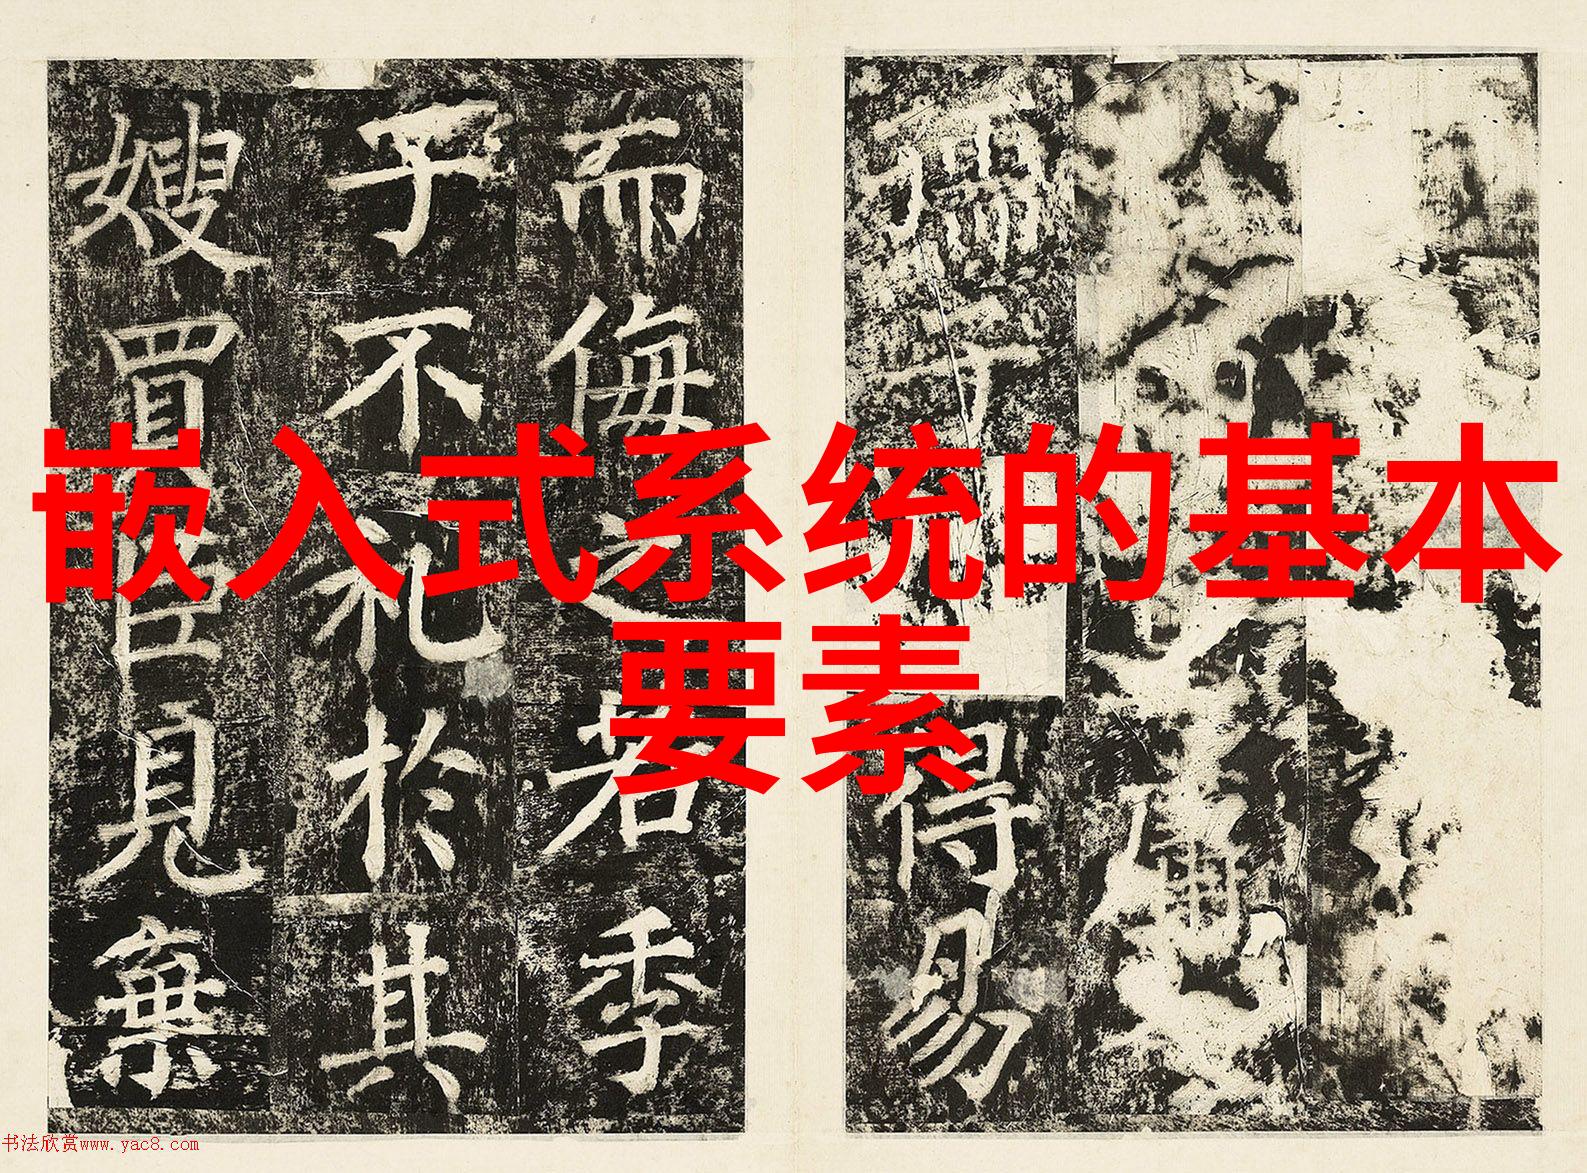 嵌入式系统的基本
要素
得易
而侮之若季
子不礼於其
嫂買臣見棄
书法欣赏www.yac8.com